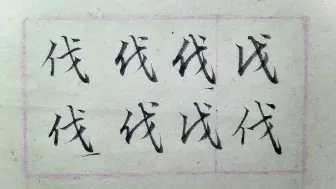 伐 伐 伐 伐
伐 伐 伐 伐